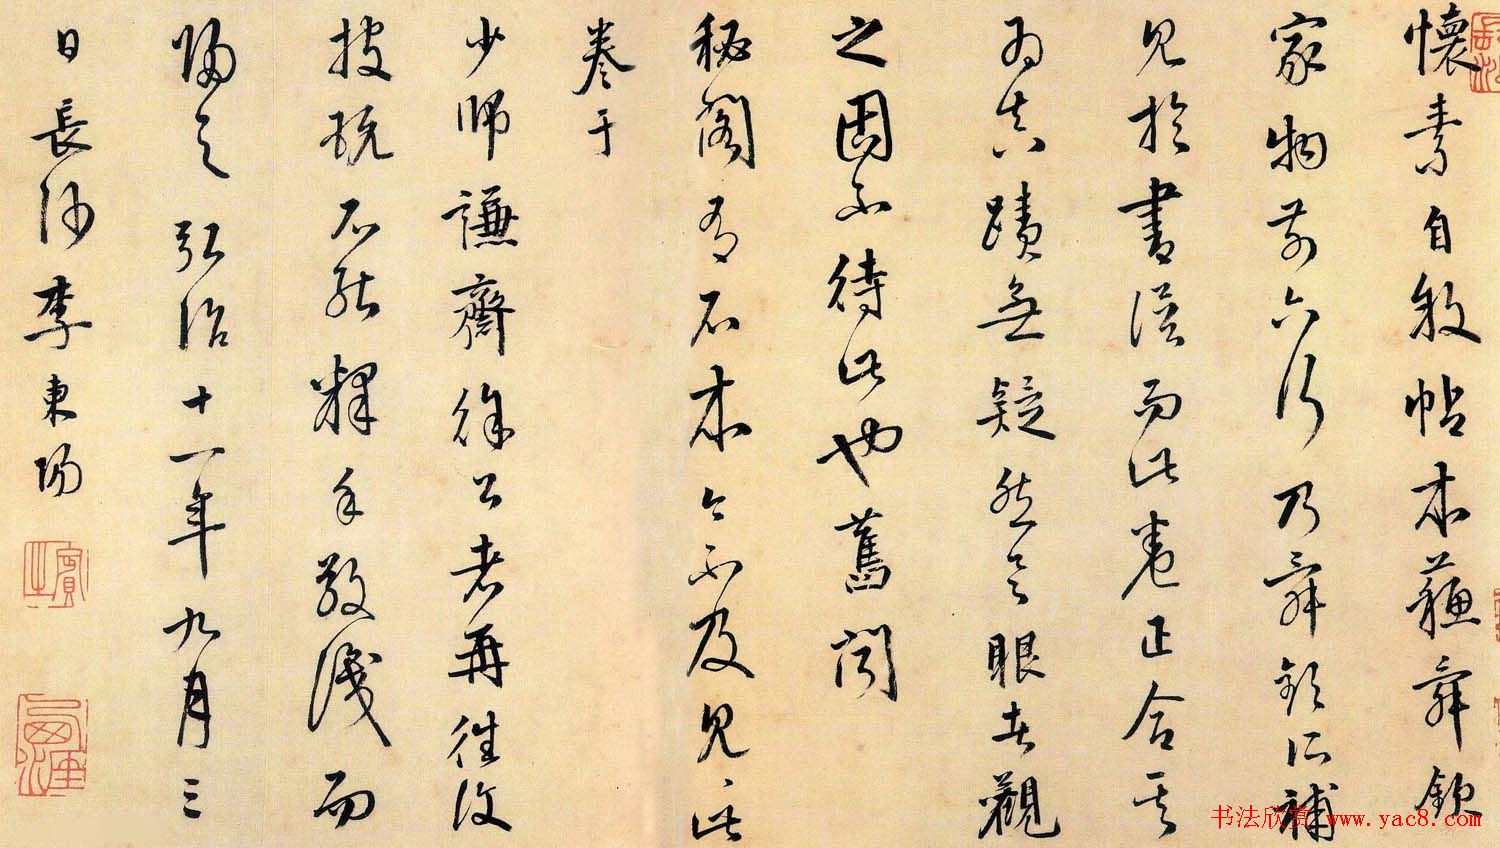 懷素自敘帖本蘇舜欽
家物前六行乃舜欽所補
見於書譜而此卷正合其
為真蹟無疑然具眼者觀
之固不待此也舊聞
秘閣有石本今不及見此
卷于
少師謙齋徐公老再往復
披玩不能釋手敬識而
歸之弘治十一年九月三
日長沙李東陽
賓之
书法欣赏 www.yac8.com